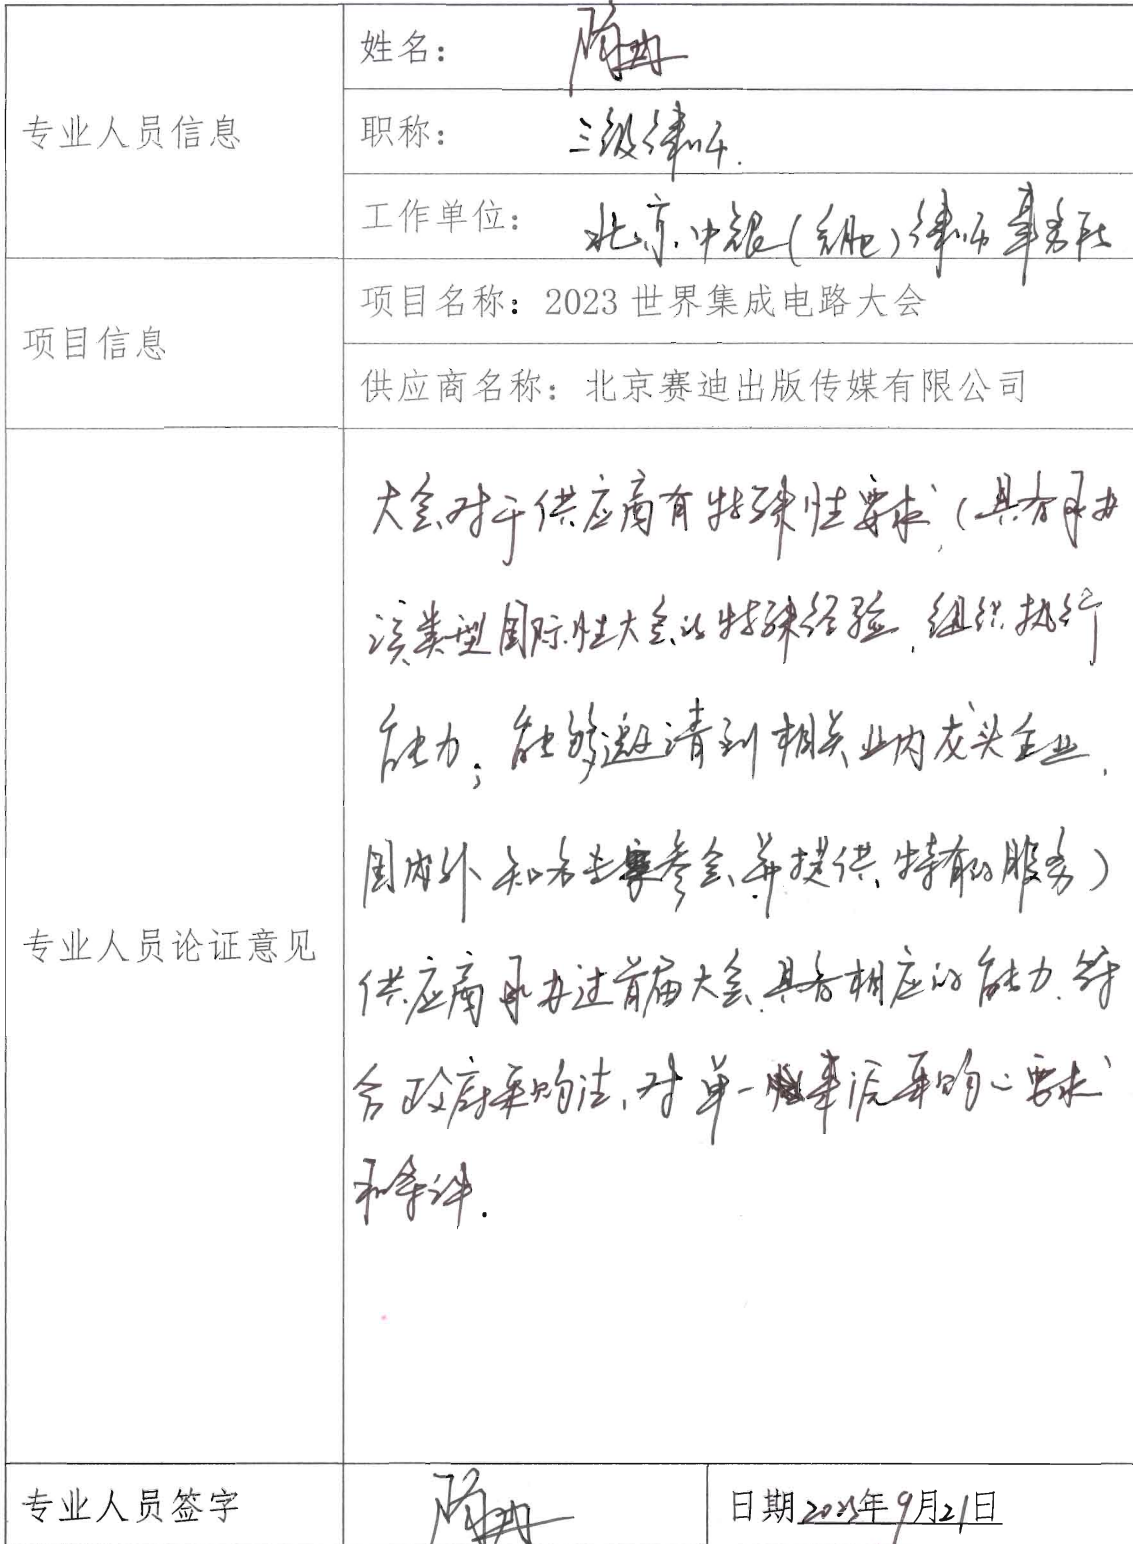 专业人员信息
姓名：
职称： 三级律师.
工作单位： 北京中银（合肥）律师事务所
项目信息
项目名称：2023 世界集成电路大会
供应商名称：北京赛迪出版传媒有限公司
专业人员论证意见
大会对于供应商有特殊性要求（具有承办
该类型国际性大会的特殊经验、组织执行
能力；能够邀请到相关业内龙头企业、
国内外知名专家参会、并提供特有的服务）
供应商承办过首届大会、具备相应的能力、符
合政府采购法、对单一来源采购的要求
和条件.
专业人员签字
日期2023年9月21日